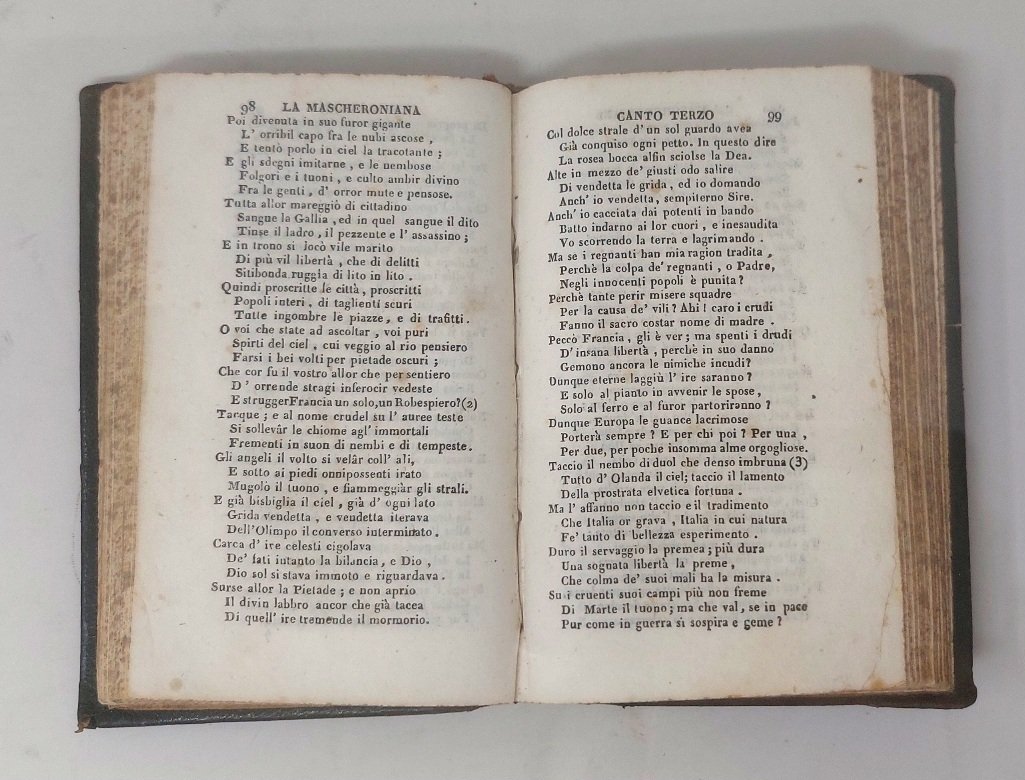 98 LA MASCHERONIANA
Poi divenuta in suo furor gigante
L' orribil capo fra le nubi ascose ,
E tentò porlo in ciel la tracotante ;
E gli sdegni imitarne , e le nembose
Folgori e i tuoni , e culto ambir divino
Fra le genti , d' orror mute e pensose.
Tutta allor mareggiò di cittadino
Sangue la Gallia , ed in quel sangue il dito
Tinse il ladro , il pezzente e l' assassino ;
E in trono si locò vile marito
Di più vil libertà , che di delitti
Sitibonda ruggìa di lito in lito .
Quindi proscritte le città , proscritti
Popoli interi , di taglienti scuri
Tutte ingombre le piazze , e di trafitti.
O voi che state ad ascoltar , voi puri
Spirti del ciel , cui veggio al rio pensiero
Farsi i bei volti per pietade oscuri ;
Che cor fu il vostro allor che per sentiero
D' orrende stragi inferocir vedeste
E strugger Francia un solo, un Robespiero? (2)
Tacque ; e al nome crudel su l' auree teste
Si sollevâr le chiome agl' immortali
Frementi in suon di nembi e di tempeste.
Gli angeli il volto si velâr coll' ali,
E sotto ai piedi onnipossenti irato
Mugolò il tuono , e fiammeggiàr gli strali.
E già bisbiglia il ciel , già d' ogni lato
Grida vendetta , e vendetta iterava
Dell' Olimpo il converso interminato .
Carca d' ire celesti cigolava
De' fati intanto la bilancia, e Dio ,
Dio sol si stava immoto e riguardava .
Surse allor la Pietade ; e non aprìo
Il divin labbro ancor che già tacea
Di quell' ire tremende il mormorio.
CANTO TERZO 99
Col dolce strale d' un sol guardo avea
Già conquiso ogni petto. In questo dire
La rosea bocca alfin sciolse la Dea.
Alte in mezzo de' giusti odo salire
Di vendetta le grida , ed io domando
Anch' io vendetta, sempiterno Sire.
Anch' io cacciata dai potenti in bando
Batto indarno ai lor cuori , e inesaudita
Vo scorrendo la terra e lagrimando .
Ma se i regnanti han mia ragion tradita ,
Perchè la colpa de' regnanti , o Padre,
Negli innocenti popoli è punita ?
Perchè tante perir misere squadre
Per la causa de' vili ? Ahi ! caro i crudi
Fanno il sacro costar nome di madre .
Peccò Francia , gli è ver ; ma spenti i drudi
D' insana libertà , perchè in suo danno
Gemono ancora le nimiche incudi ?
Dunque eterne laggiù l' ire saranno ?
E solo al pianto in avvenir le spose ,
Solo al ferro e al furor partoriranno ?
Dunque Europa le guance lacrimose
Porterà sempre ? E per chi poi ? Per una ,
Per due, per poche insomma alme orgogliose.
Taccio il nembo di duol che denso imbruna (3)
Tutto d' Olanda il ciel; taccio il lamento
Della prostrata elvetica fortuna .
Ma l' affanno non taccio e il tradimento
Che Italia or grava , Italia in cui natura
Fe' tanto di bellezza esperimento .
Duro il servaggio la premea ; più dura
Una sognata libertà la preme ,
Che colma de' suoi mali ha la misura .
Su i cruenti suoi campi più non freme
Di Marte il tuono; ma che val , se in pace
Pur come in guerra si sospira e geme ?